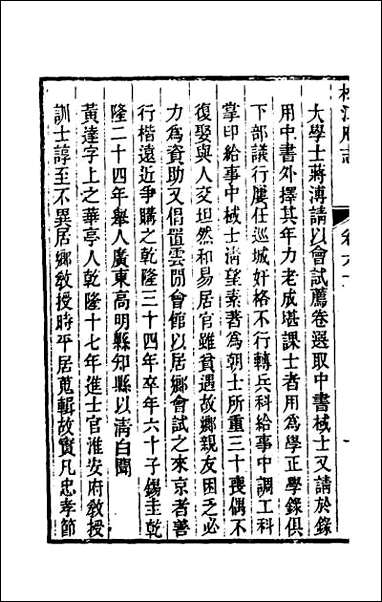 松江府志
卷六十
大學士蔣溥請以會試薦卷選取中書棫士又請於錄
用中書外擇其年力老成堪課士者用為學正學錄俱
下部議行屢任巡城奸格不行轉兵科給事中調工科
掌印給事中棫士淸望素著為朝士所重三十喪偶不
復娶與人交坦然和易居官雖貧遇故鄉親友困乏必
力為資助又倡置雲間會館以居鄉會試之來京者善
行楷遠近爭購之乾隆三十四年卒年六十子錫圭乾
隆二十四年舉人廣東高明縣知縣以淸白聞
黃達字上之華亭人乾隆十七年進士官淮安府教授
訓士諄至不異居鄉教授時平居蒐輯故實凡忠孝節